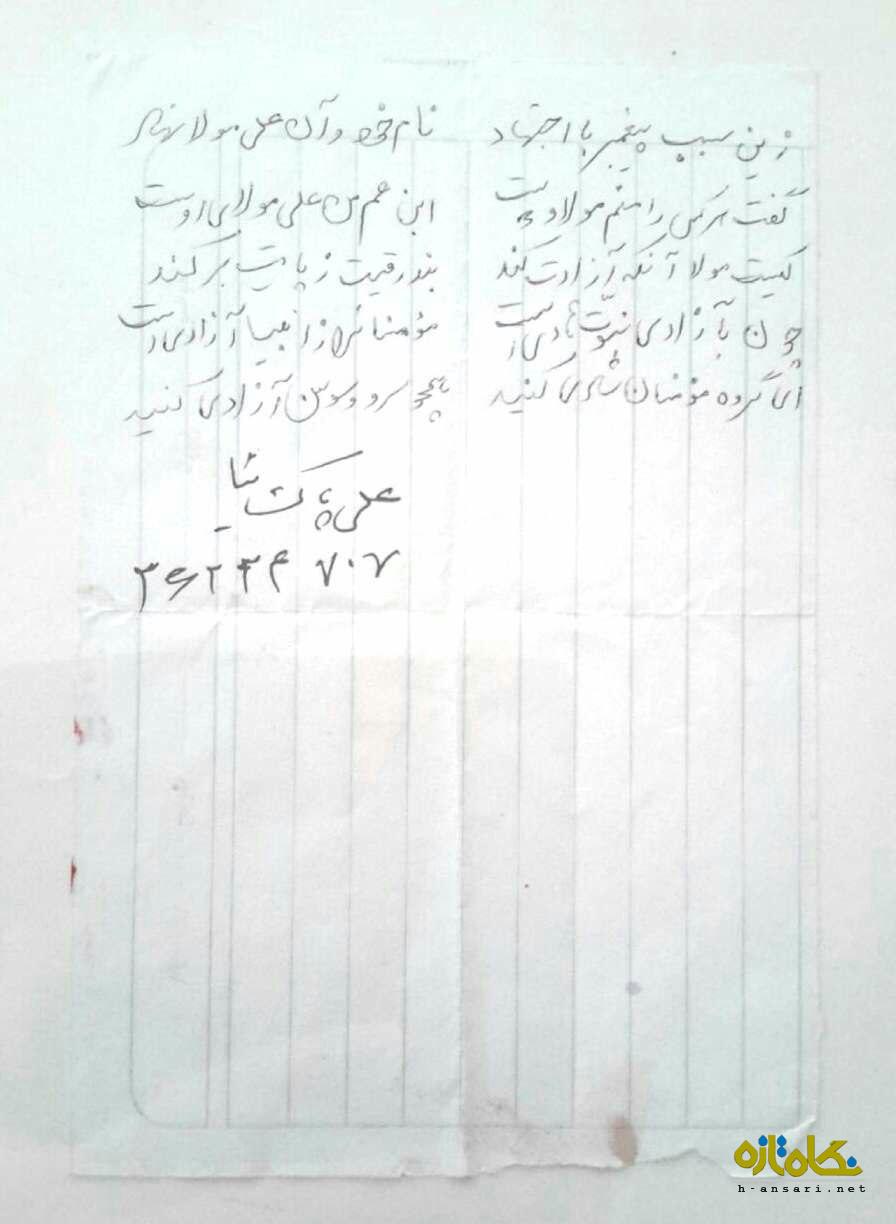 زین سبب پیغمبر با اجتهاد نام خود و آن علی مولا نهاد
گفت هر کس را منم مولا و دوست ابن عم من علی مولای اوست
کیست مولا آنکه آزادت کند بند رقیت ز پایت بر کند
چون بآزادی نبوّت هادی است مؤمنان را ز انبیا آزادی است
ای گروه مؤمنان شادی کنید همچو سرو و سوسن آزادی کنید
علی
۳۶۲۳۴ ۷۰۷
نگاه تازه
h-ansari.net